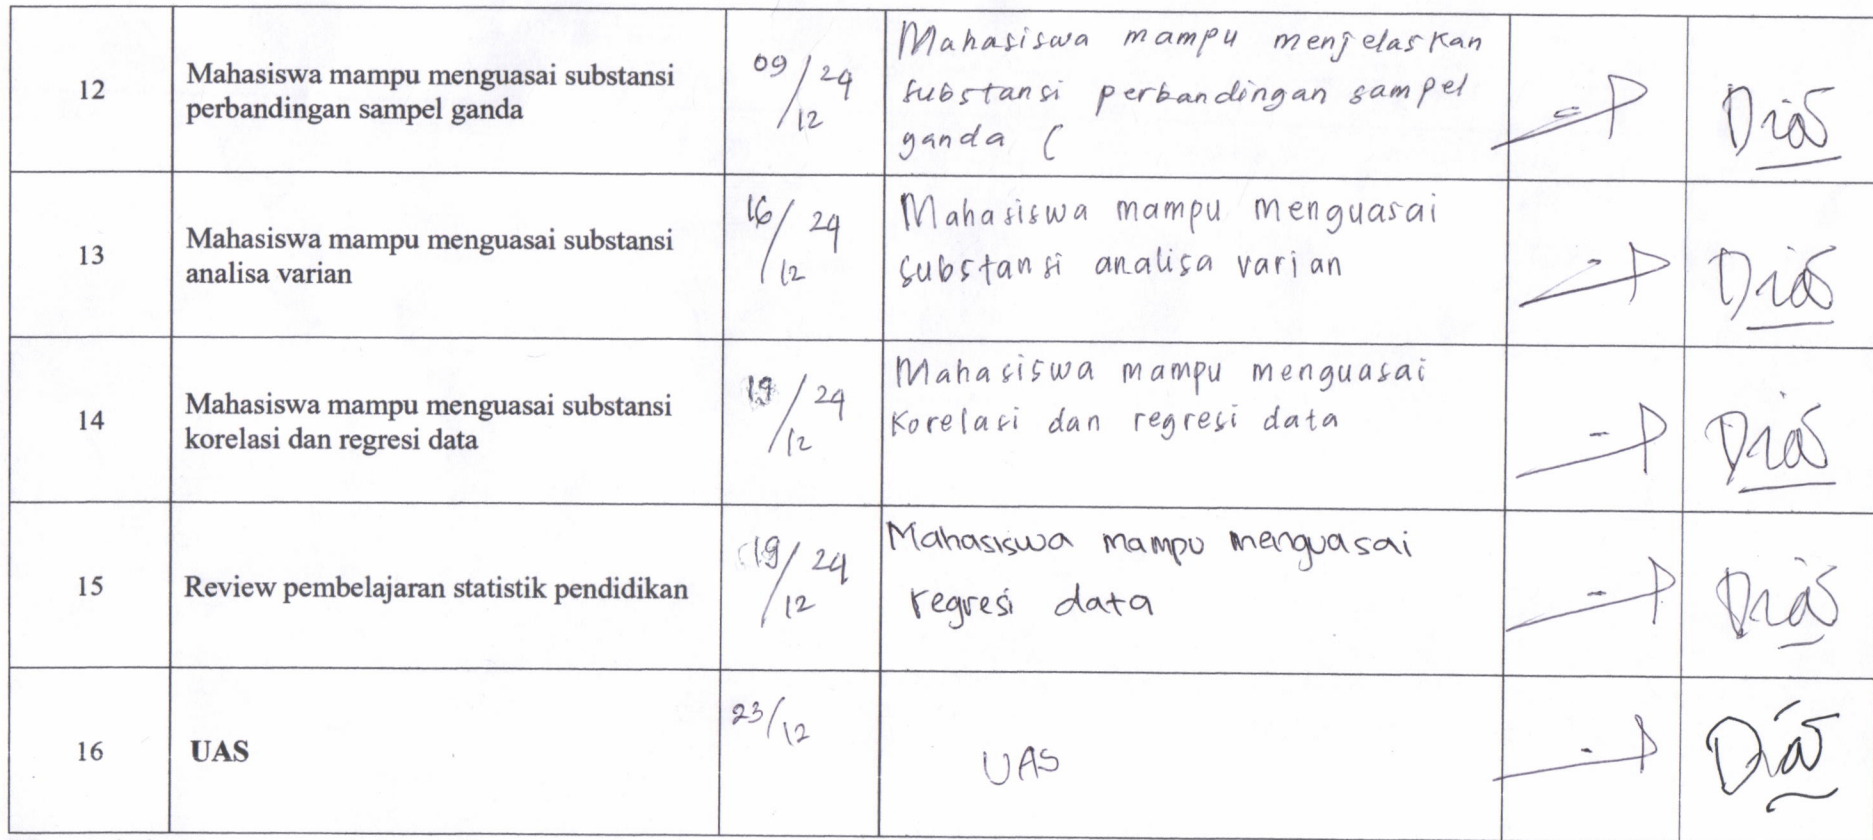 12
Mahasiswa mampu menguasai substansi
perbandingan sampel ganda
09/12 24
Mahasiswa mampu menjelaskan
substansi perbandingan sampel
ganda (
Dias
13
Mahasiswa mampu menguasai substansi
analisa varian
16/12 24
Mahasiswa mampu menguasai
substansi analisa varian
Dias
14
Mahasiswa mampu menguasai substansi
korelasi dan regresi data
/12 24
Mahasiswa mampu menguasai
korelasi dan regresi data
Dias
15
Review pembelajaran statistik pendidikan
19/12 24
Mahasiswa mampu menguasai
regresi data
Dias
16
UAS
23/12
UAS
Dias